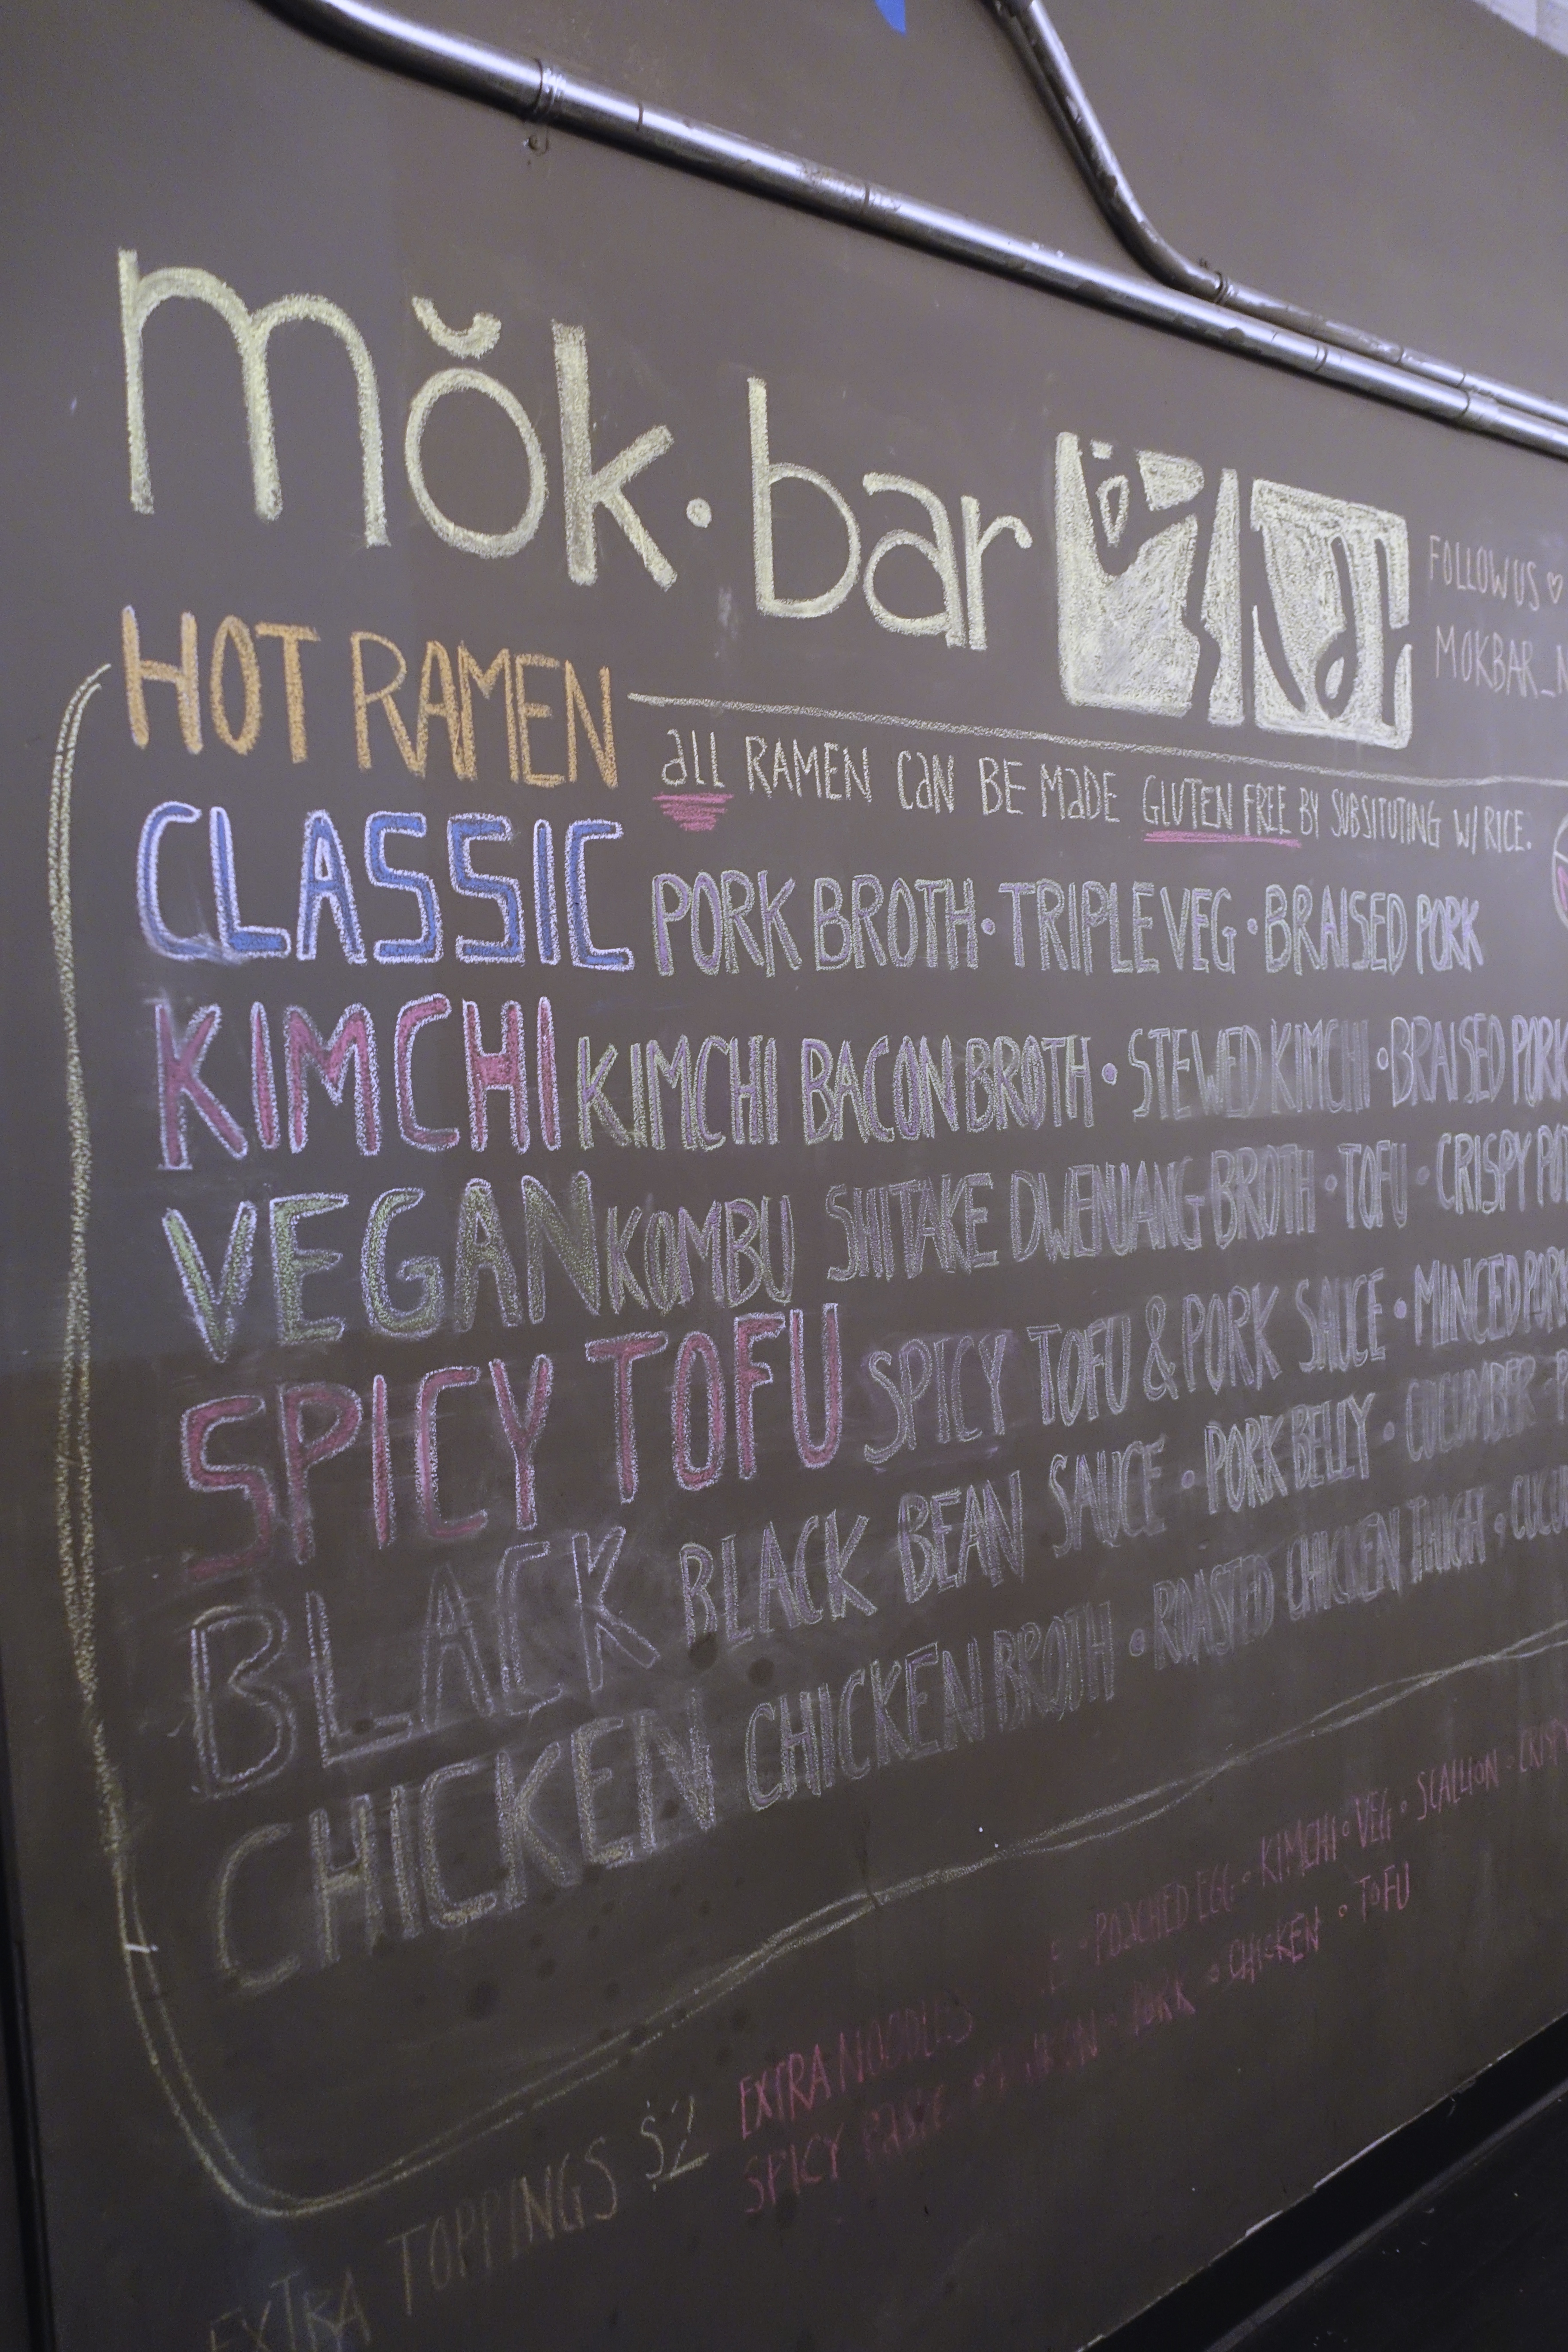 mŏk·bar
FOLLOW US ♡
MOKBAR_N
HOT RAMEN
all RAMEN CaN BE MadE GLUTEN FREE BY SUBSITUTING W/ RICE.
CLASSIC PORK BROTH • TRIPLE VEG • BRAISED PORK
KIMCHI KIMCHI BACON BROTH • STEWED KIMCHI • BRAISED PORK
VEGAN KOMBU SHITAKE DWENJANG BROTH • TOFU • CRISPY
SPICY TOFU SPICY TOFU & PORK SAUCE • MINCED PORK
BLACK BLACK BEAN SAUCE • PORK BELLY • CUCUMBER
CHICKEN CHICKEN BROTH • ROASTED CHICKEN THIGH •
EXTRA TOPPINGS $2
EXTRA NOODLES • POACHED EGG • KIMCHI • VEG • SCALLION • CRISPY
SPICY • PORK • CHICKEN • TOFU